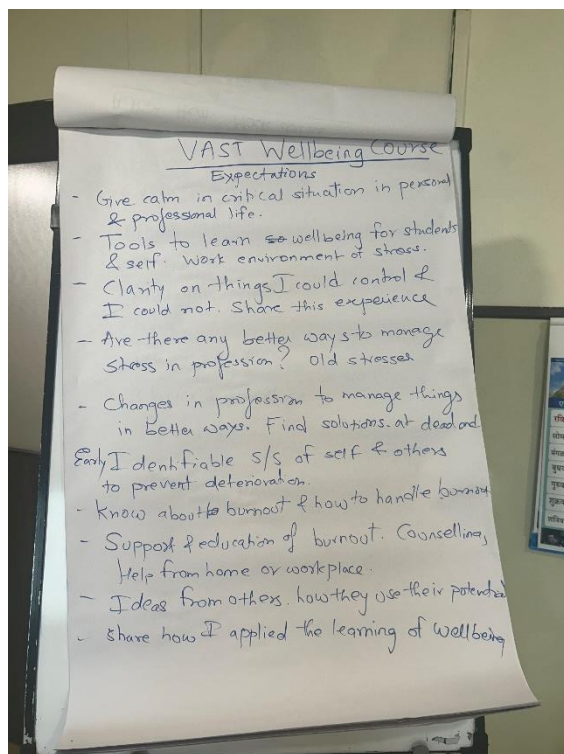 VAST Wellbeing Course
Expectations
- Give calm in critical situation in personal
& professional life.
- Tools to learn wellbeing for students
& self. Work environment of stress.
- Clarity on things I could control &
I could not. Share this experience
- Are there any better ways to manage
stress in profession? Old stresses
- Changes in profession to manage things
in better ways. Find solutions. at dead end
Early Identifiable S/S of self & others
to prevent deterioration.
- Know about burnout & how to handle burnout
- Support & education of burnout. Counselling,
Help from home or workplace.
- Ideas from others. how they use their potential
- Share how I applied the learning of wellbeing